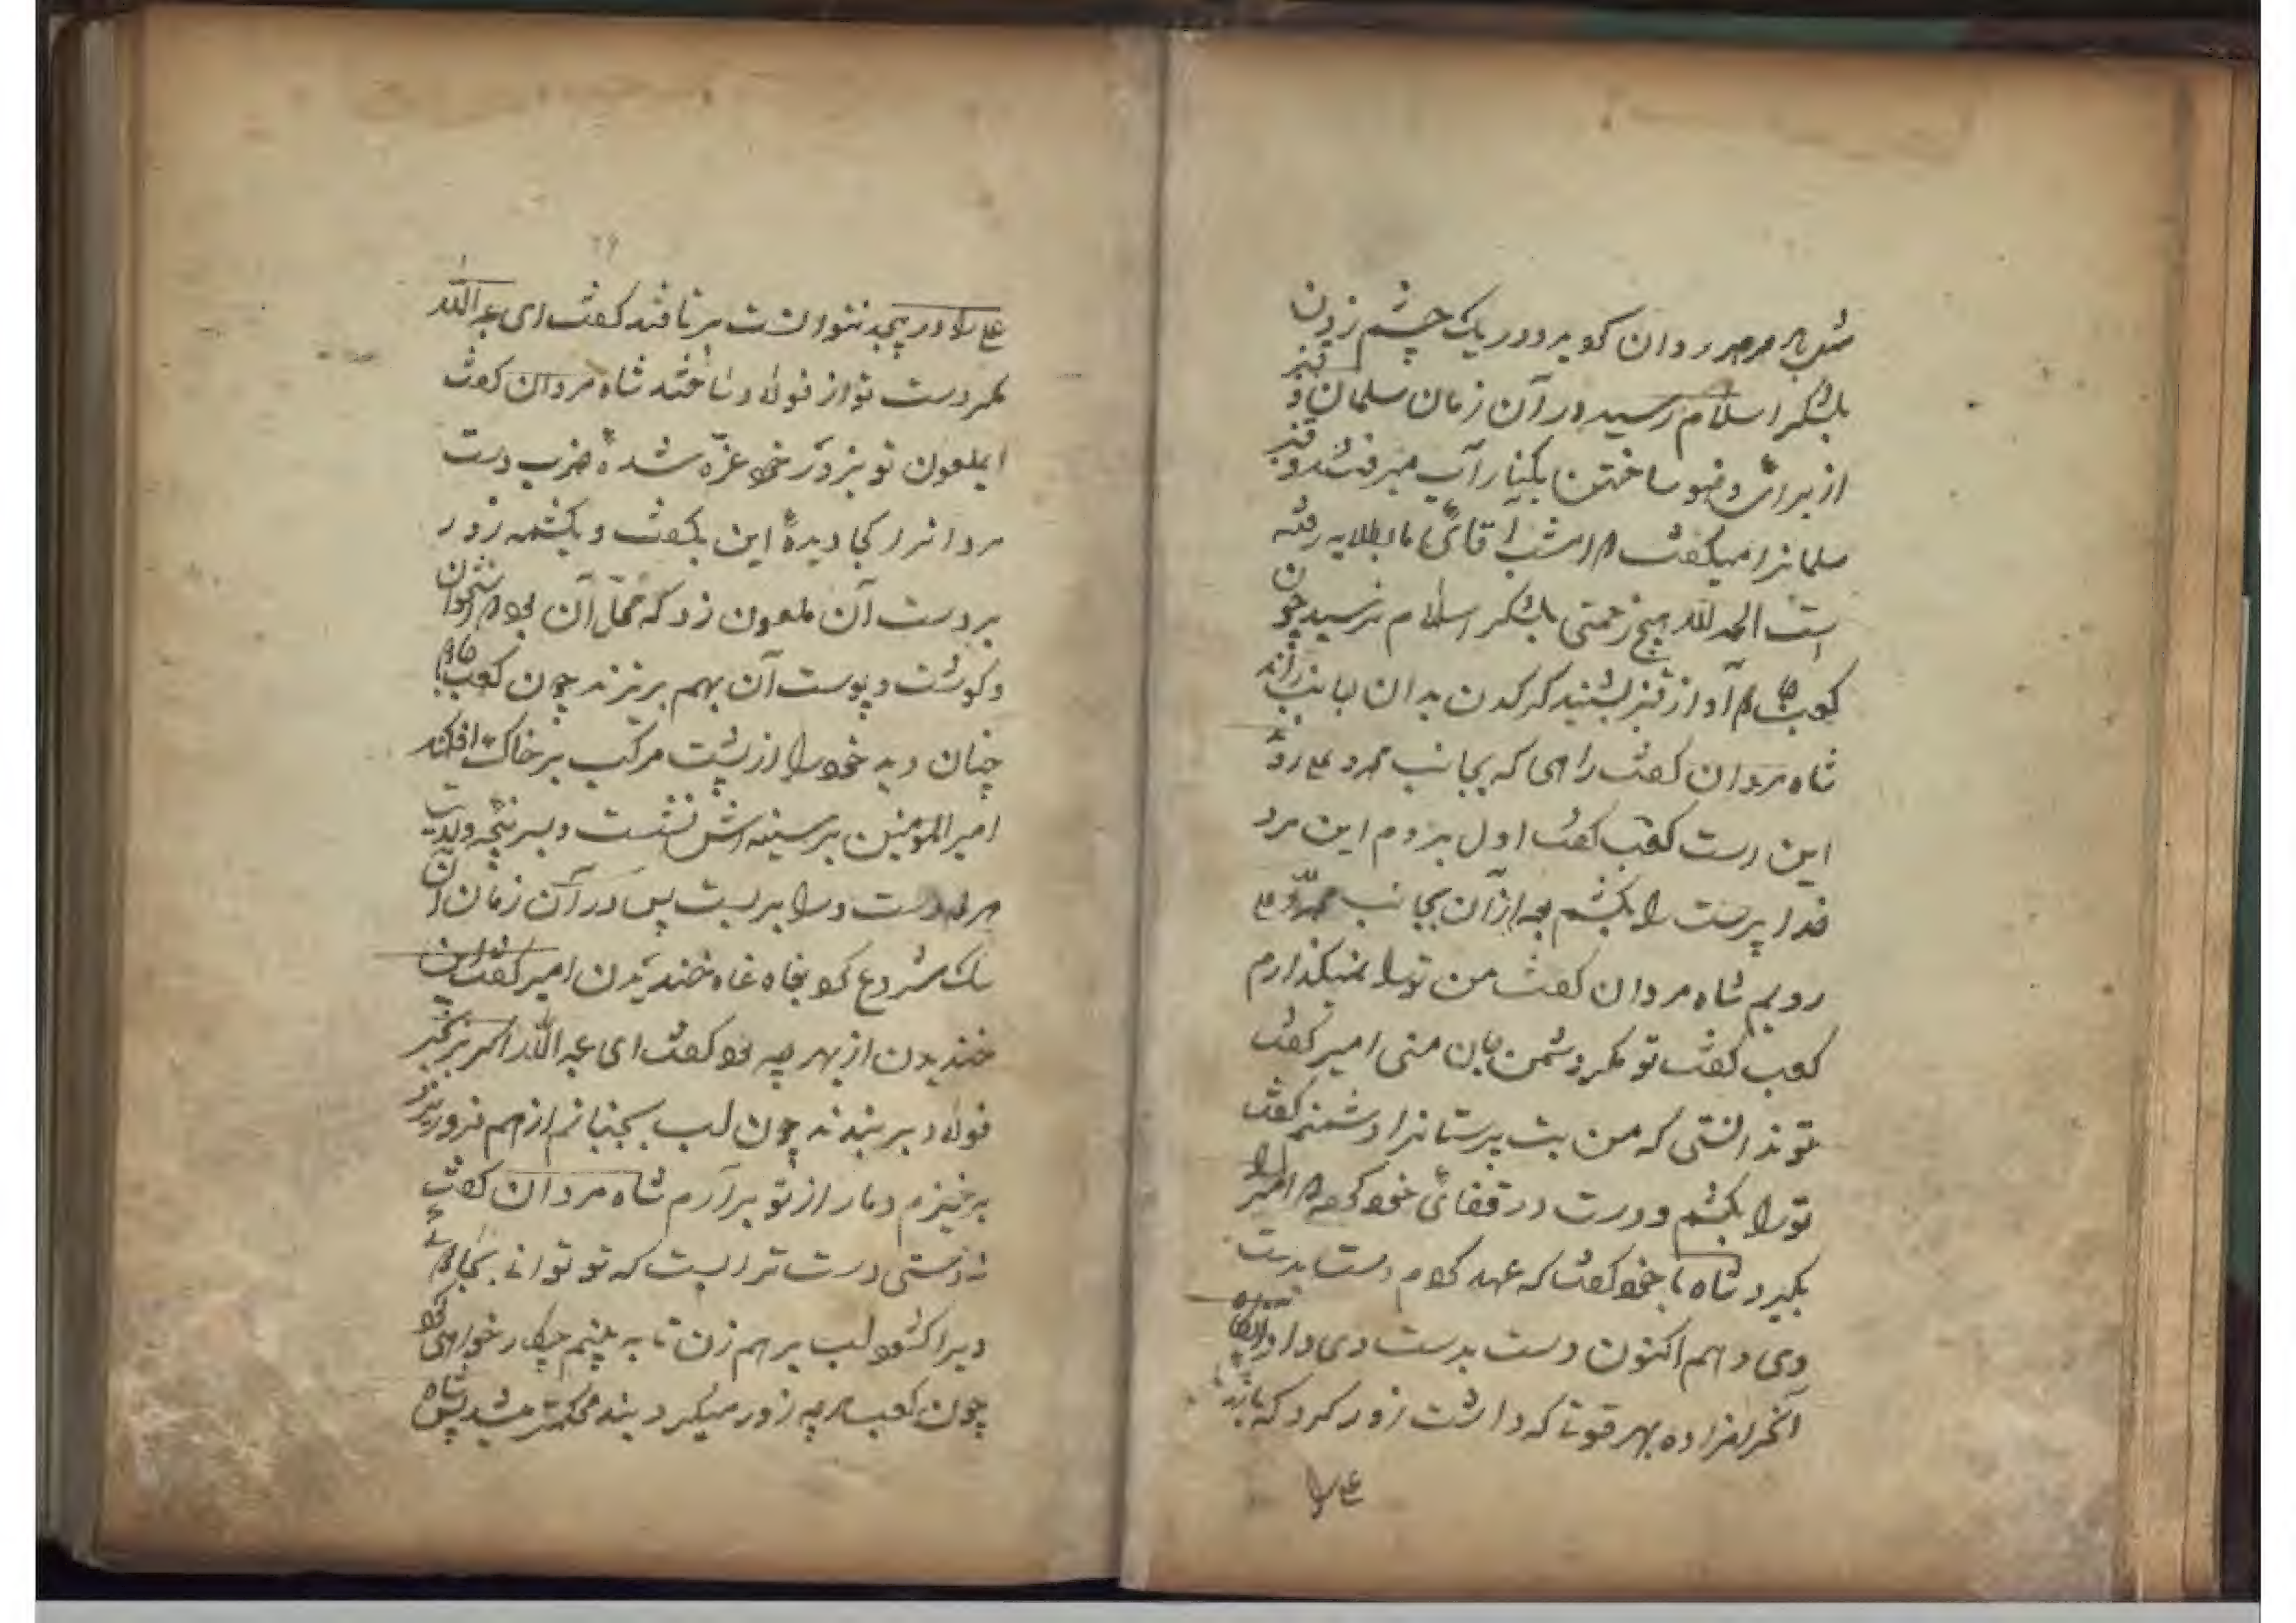 روان کو برد در یک چشم زدن
بلشکر اسلام رسید در آن زمان سلمان و قنبر
از برائ وضو ساختن بکنار آب میرفتند و قنبر
سلمانرا میکفت امشب اقائ ما بطلایه رفته
است الحمد لله هیچ زحمتی بلشکر اسلام نرسید چون
کعب آواز قنبر بشنید کرکدن بدان جانب راند
شاه مردان کفت راهی که بجانب محمد و علی رود
این است کعب کفت اول بروم این مرد
خدا پرست را بکشم بعد از آن بجانب محمد و علی
رویم شاه مردان کفت من تورا نمیکذارم
کعب کفت تو مکر دشمن جان منی امیر کفت
تو ندانستی که من بت پرستانرا دشمنم کفت
تورا بکشم و دست در قفائ خود کرد امیر را
بکیرد شاه با خود کفت که عهد کردم دست بدست
وی دهم اکنون دست بدست وی داد
آنحرامزاده بهر قوتا که داشت زور کرد که
علی را
علی را در پیچد نتوانست بر تافتد کفت ای عبدالله
مکر دست تو از فولاد ساخته شاه مردان کفت
ایملعون تو بزور خود غرّه شدهٔ ضرب دست
مردانرا کجا دیدهٔ این بکفت و یکشمه زور
بر دست آن ملعون زد که محل آن بود استخوان
و کوشت و پوست آن بهم برنزند چون کعب
چنان دید خودرا از پشت مرکب بر خاک افکند
امیر المؤمنین بر سینه اش نشست و بسر پنجه ولایت
هر دو دست ورا بر بست پس در آن زمان آن
سک شروع کرد بقاه قاه خندیدن امیر کفت این
خندیدن از بهر چه بود کفت ای عبدالله اکر بزنجیر
فولاد بر بندند چون لب بجنبانم از هم فرو ریزد
برخیزم دمار از تو برآرم شاه مردان کفت
نه دستی دست ترا بست که تو توانی
دیرا کشود لب بر هم زن تا به بینم چکار خواهی کرد
چون کعب هر چه زور میکرد بند محکمتر میشد پس شاه